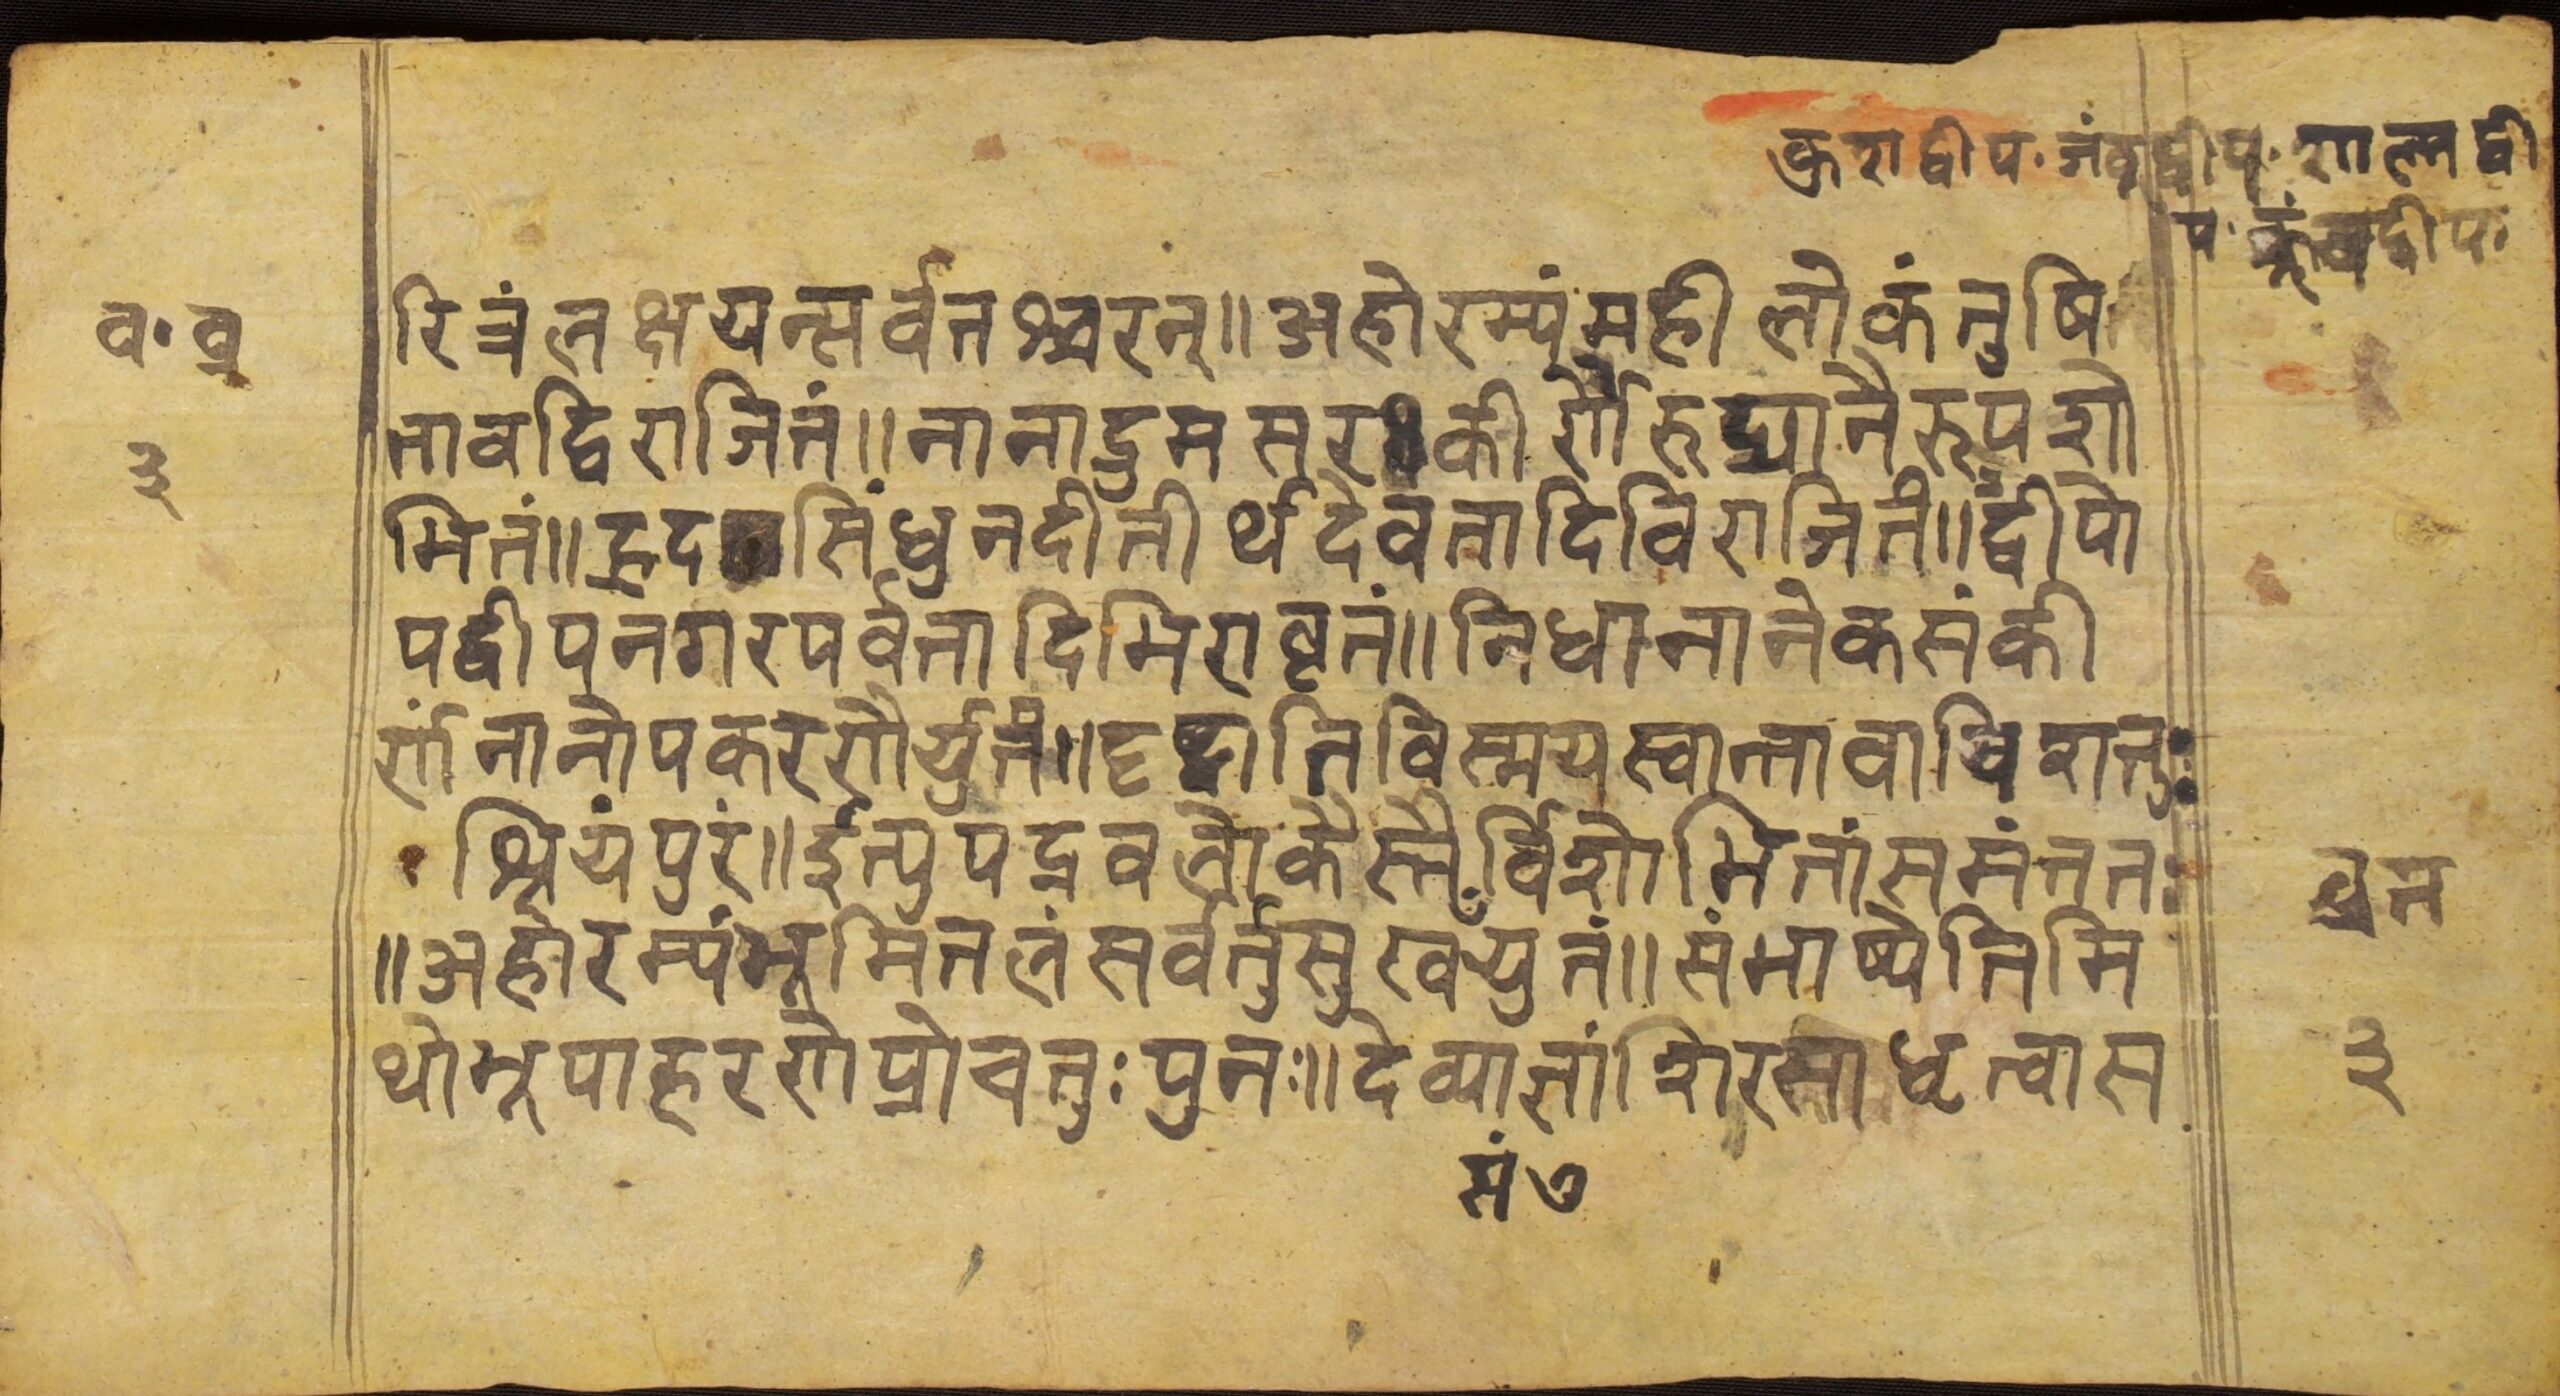 कुशद्वीप. जंबूद्वीप. शाल्मद्वी
प. क्रूंचद्वीप.
व. व्र
३
रित्रं लक्षयन्सर्वतश्चरन्॥ अहो रम्यं मही लोकं तुषि
तावद्विराजितं॥ नानाद्रुमसराकीर्णैरुद्यानैरुपशो
भितं॥ ह्रद सिंधुनदीतीर्थदेवतादिविराजितं॥ द्वीपो
पद्वीपनगरपर्वतादिभिरावृतं॥ निधानानेकसंकी
र्णं नानोपकरणैर्युतं॥ दृष्ट्वातिविस्मयस्वान्तावाविशतुः
श्रियं पुरं॥ इत्युपद्रवलोकैस्तैर्विशोभितां समंततः
॥ अहो रम्यं भूमितलं सर्वर्तुसुखंयुतं॥ संभाष्येति मि
थो भूपाहरणे प्रोचतुः पुनः॥ देव्याज्ञां शिरसा धृत्वा स
व्रत
३
सं ७